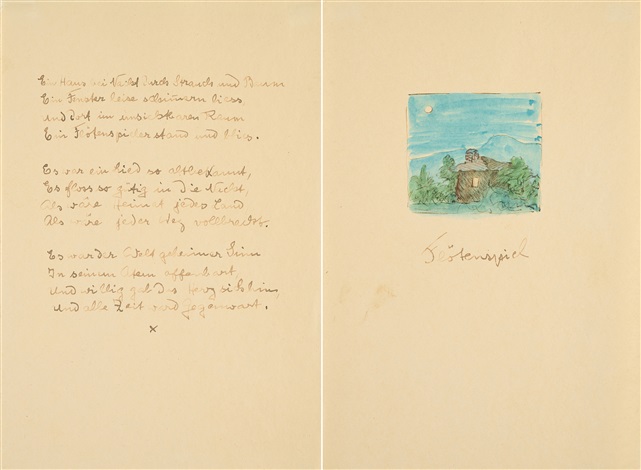 Ein Haus bei Nacht durch Strauch und Baum
Ein Fenster leise schimmern liess
und dort im unsichtbaren Raum
Ein Flötenspieler stand und blies.
Es war ein Lied so altbekannt,
Es floss so gütig in die Nacht,
Als wäre Heimat jedes Land
Als wäre jeder Weg vollbracht.
Es war der Welt geheimer Sinn
In seinem Atem offenbart
Und willig gab das Herz sich hin,
und alle Zeit ward Gegenwart.
x
Flötenspiel